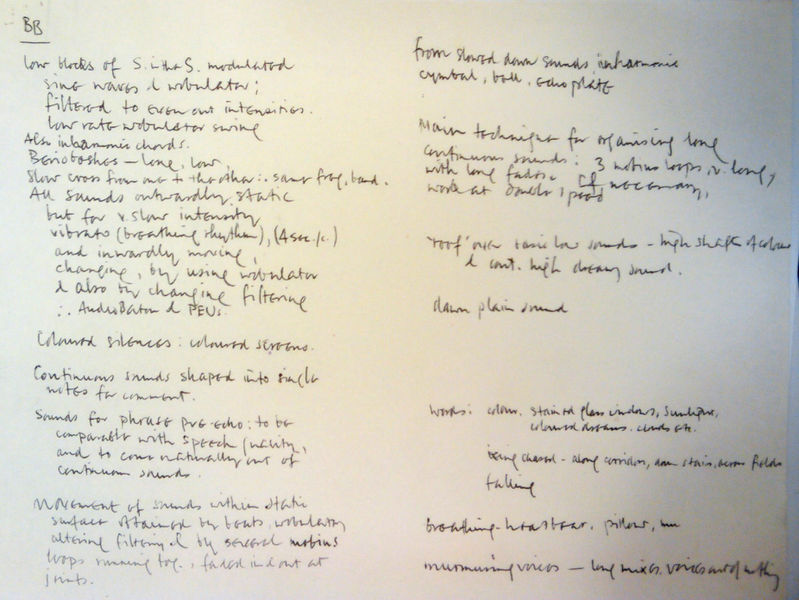 BB
low blocks of S. with a S. modulated
sine waves & wobulator;
filtered to even out intensities.
low rate wobulator swing
Also inharmonic chords.
long, low,
slow cross from one to the other ∴ same freq. band.
All sounds outwardly static
but for v. slow intensity
vibrato (breathing rhythm), (4 sec./c.)
and inwardly moving,
changing, by using wobulator
& also by changing filtering
∴ AudioBaton & PEUs.
Coloured silences: coloured screens.
Continuous sounds shaped into single
notes for comment.
Sounds for phrase pre-echo: to be
comparable with speech quality,
and to come naturally out of
continuous sounds.
Movement of sounds within static
surface obtained by beats, wobulator,
altering filtering & by several mobius
loops running tog., faded in & out at
joints.
from slowed down sounds, inharmonic
cymbal, bell, echo plate
Main technique for organising long
continuous sounds: 3 mobius loops, v. long,
with long fades. if necessary,
work at double speed
'roof' over basic low sounds – high shafts of colour
& cont. high dreamy sound.
dawn plain sound
words: colour. stained glass windows, sunlight,
coloured dreams. clouds etc.
being chased – along corridors, down stairs, across fields
falling
breathing. heartbeat. pillow,
murmuring voices – long mixes. voices out of nothing